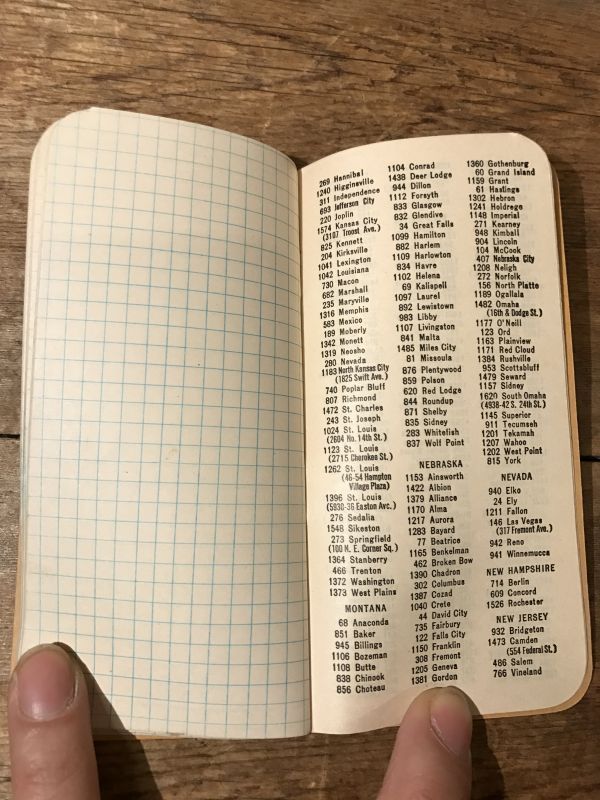 269 Hannibal
1240 Higginsville
311 Independence
693 Jefferson City
220 Joplin
1574 Kansas City
(3107 Troost Ave.)
825 Kennett
204 Kirksville
1041 Lexington
1042 Louisiana
730 Macon
682 Marshall
235 Maryville
1316 Memphis
583 Mexico
189 Moberly
1342 Monett
1319 Neosho
280 Nevada
1183 North Kansas City
(1825 Swift Ave.)
740 Poplar Bluff
807 Richmond
1472 St. Charles
243 St. Joseph
1024 St. Louis
(2604 No. 14th St.)
1123 St. Louis
(2715 Cherokee St.)
1262 St. Louis
(46-54 Hampton
Village Plaza)
1396 St. Louis
(5930-36 Easton Ave.)
276 Sedalia
1548 Sikeston
273 Springfield
(100 N. E. Corner Sq.)
1364 Stanberry
466 Trenton
1372 Washington
1373 West Plains
MONTANA
68 Anaconda
851 Baker
945 Billings
1106 Bozeman
1108 Butte
838 Chinook
856 Choteau
1104 Conrad
1438 Deer Lodge
944 Dillon
1112 Forsyth
833 Glasgow
832 Glendive
34 Great Falls
1099 Hamilton
882 Harlem
1109 Harlowton
834 Havre
1102 Helena
69 Kalispell
1097 Laurel
892 Lewistown
983 Libby
1107 Livingston
841 Malta
1485 Miles City
81 Missoula
876 Plentywood
859 Polson
620 Red Lodge
844 Roundup
871 Shelby
835 Sidney
283 Whitefish
837 Wolf Point
NEBRASKA
1153 Ainsworth
1422 Albion
1379 Alliance
1170 Alma
1217 Aurora
1283 Bayard
77 Beatrice
1165 Benkelman
462 Broken Bow
1390 Chadron
302 Columbus
1387 Cozad
1040 Crete
44 David City
735 Fairbury
122 Falls City
1150 Franklin
308 Fremont
1205 Geneva
1381 Gordon
1360 Gothenburg
60 Grand Island
1159 Grant
61 Hastings
1302 Hebron
1241 Holdrege
1148 Imperial
271 Kearney
948 Kimball
904 Lincoln
104 McCook
407 Nebraska City
1208 Neligh
272 Norfolk
156 North Platte
1189 Ogallala
1482 Omaha
(16th & Dodge St.)
1177 O'Neill
123 Ord
1163 Plainview
1171 Red Cloud
1384 Rushville
953 Scottsbluff
1479 Seward
1157 Sidney
1620 South Omaha
(4938-42 S. 24th St.)
1145 Superior
911 Tecumseh
1201 Tekamah
1207 Wahoo
1202 West Point
815 York
NEVADA
940 Elko
24 Ely
1211 Fallon
146 Las Vegas
(317 Fremont Ave.)
942 Reno
941 Winnemucca
NEW HAMPSHIRE
714 Berlin
609 Concord
1526 Rochester
NEW JERSEY
932 Bridgeton
1473 Camden
(554 Federal St.)
486 Salem
766 Vineland